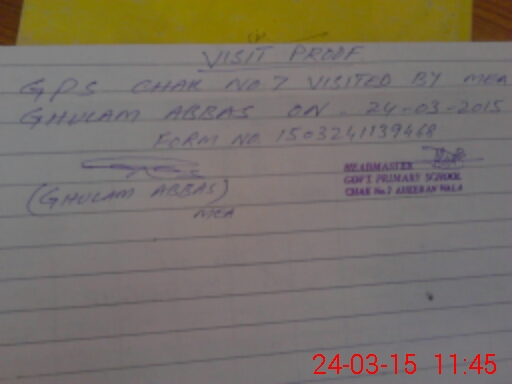 VISIT PROOF
GPS CHAK NO 7 VISITED BY MEA
GHULAM ABBAS ON 24-03-2015
FORM NO. 1503241139468
(GHULAM ABBAS)
MEA
HEADMASTER
GOVT. PRIMARY SCHOOL
CHAK No.7 AHEERAN WALA
24-03-15 11:45